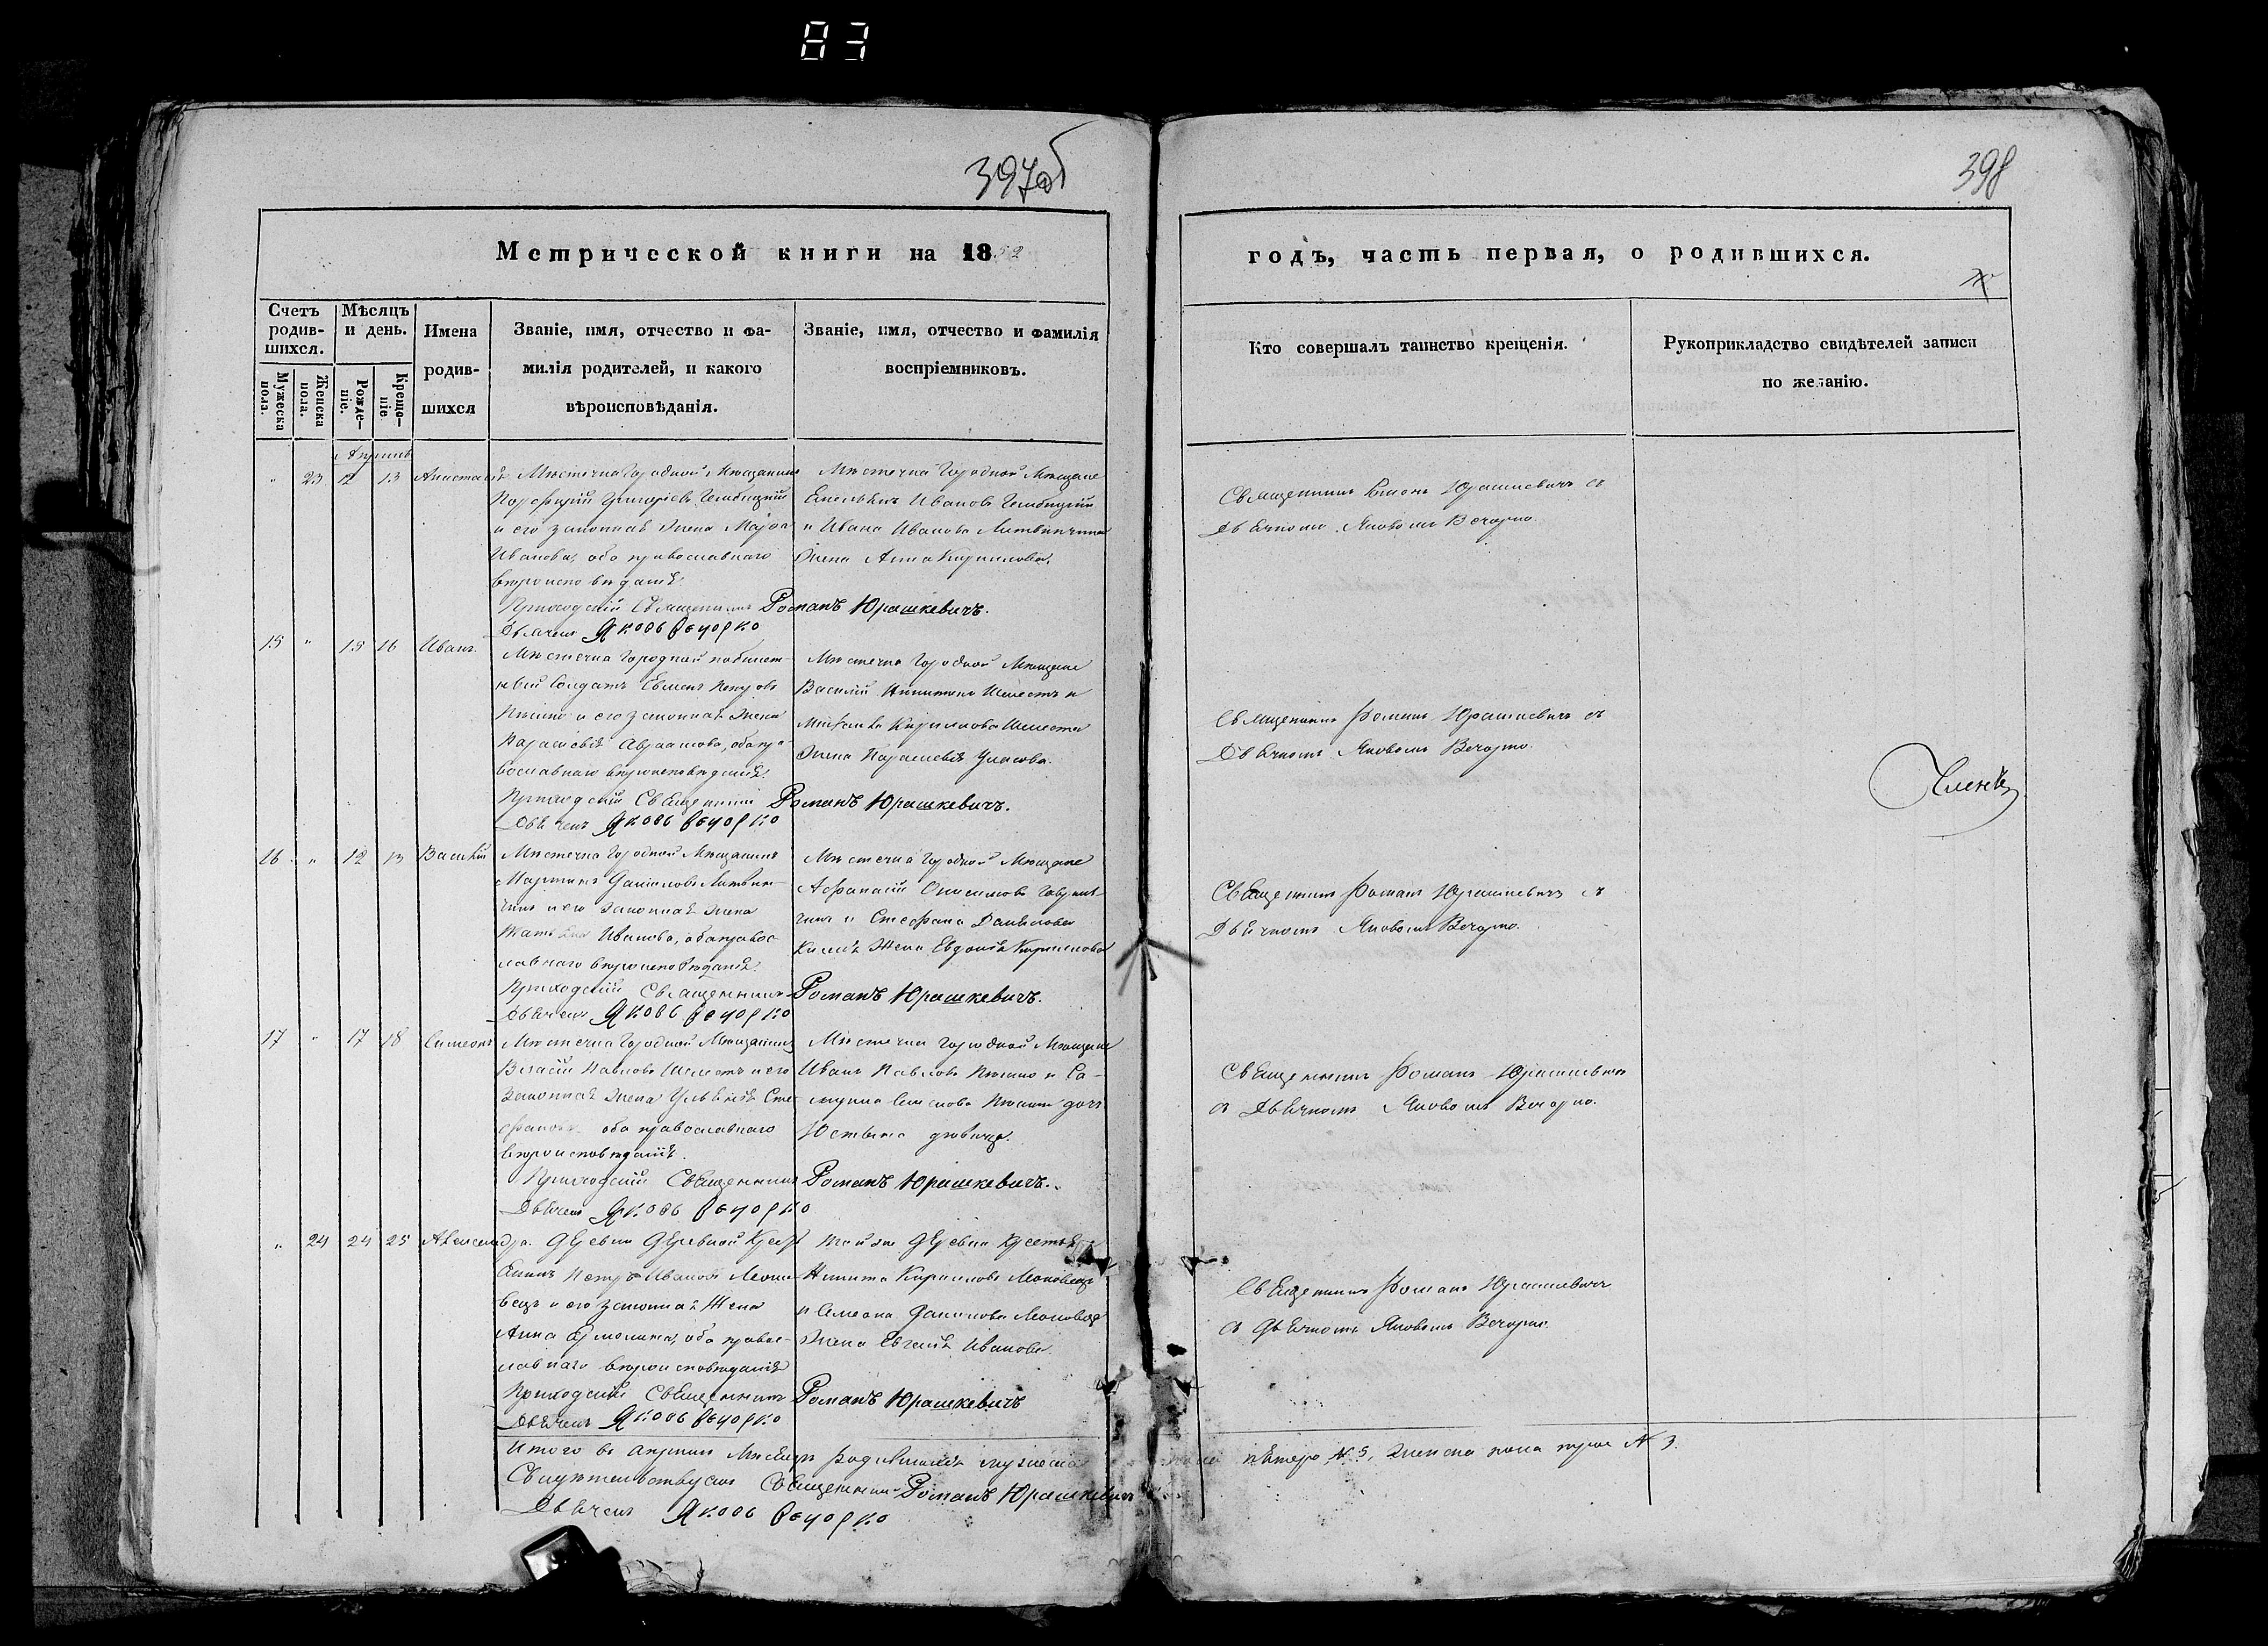 83
397об
398
Метрической книги на 1852
годъ, часть первая, о родившихся.
Счетъ родив-шихся.
Мѣсяцъ и день.
Имена родив-шихся
Званіе, имя, отчество и фа-
милія родителей, и какого
вѣроисповѣданія.
Званіе, имя, отчество и фамилія
воспріемниковъ.
Кто совершалъ таинство крещенія.
Рукоприкладство свидѣтелей записи
по желанію.
Мужеска пола.
Женска пола.
Рожде-ніе.
Креще-ніе
Апрель
" 23 12 13 Анастасія
Мѣстечка Городной Мещанинъ
Порфирій Григоріевъ
и его законная жена Марѳа
Иванова, оба православнаго
вѣроисповѣданія.
Приходскій Священникъ Романъ Юрашкевичъ.
Дьячекъ Яковъ Вечорко
Мѣстечка Городной Мещане
Емельянъ Ивановъ
и Ивана Иванова Литвинчика
жена Анна Кирилова.
Священникъ Романъ Юрашкевичъ съ
Дьячкомъ Яковомъ Вечорко.
15 " 15 16 Иванъ.
Мѣстечка Городной
Солдатъ Семенъ Петровъ
и его законная жена
Параскевія Авраамова, оба пра-
вославнаго вѣроисповѣданія.
Приходскій Священникъ Романъ Юрашкевичъ.
Дьячекъ Яковъ Вечорко
Мѣстечка Городной Мещане
Василій Никитинъ Шелестъ и
Кирилова Шелеста
жена Параскевія Уласова.
Священникъ Романъ Юрашкевичъ съ
Дьячкомъ Яковомъ Вечорко.
16 " 12 13 Василій
Мѣстечка Городной Мещанинъ
Мартинъ Даниловъ Литвин-
чикъ и его законная жена
Иванова, оба правос-
лавнаго вѣроисповѣданія.
Приходскій Священникъ Романъ Юрашкевичъ.
Дьячекъ Яковъ Вечорко
Мѣстечка Городной Мещане
Афанасій Онисимовъ Гаврил-
чикъ и Стефана Данилова
жена Евдокія Кирилова
Священникъ Романъ Юрашкевичъ съ
Дьячкомъ Яковомъ Вечорко.
17 " 17 18 Симеонъ
Мѣстечка Городной Мещанинъ
Власій Павловъ Шелестъ и его
законная жена Ульянія Сте-
фанова оба православнаго
вѣроисповѣданія.
Приходскій Священникъ Романъ Юрашкевичъ.
Дьячекъ Яковъ Вечорко
Мѣстечка Городной Мещане
Иванъ Павловъ и Са-
муила дочь
Юстына девица.
Священникъ Романъ Юрашкевичъ
съ Дьячкомъ Яковомъ Вечорко.
" 24 24 25 Александра.
Деревни Деревной Крест-
янинъ Петръ Ивановъ Моко-
вецъ и его законная жена
Анна Ермолина, оба правос-
лавнаго вѣроисповѣданія
Приходскій Священникъ Романъ Юрашкевичъ
Дьячекъ Яковъ Вечорко
той же деревни крестяне
Никита Кириловъ Моковецъ
и Семена Данилова Моковца
жена Евгенія Иванова.
Священникъ Романъ Юрашкевичъ
съ Дьячкомъ Яковомъ Вечорко.
Итого въ Апрелѣ Мѣсяцѣ родившихся мужеска пола пятеро №5, женска пола трое №3.
Свидѣтельствуемъ Священникъ Романъ Юрашкевичъ
Дьячекъ Яковъ Вечорко